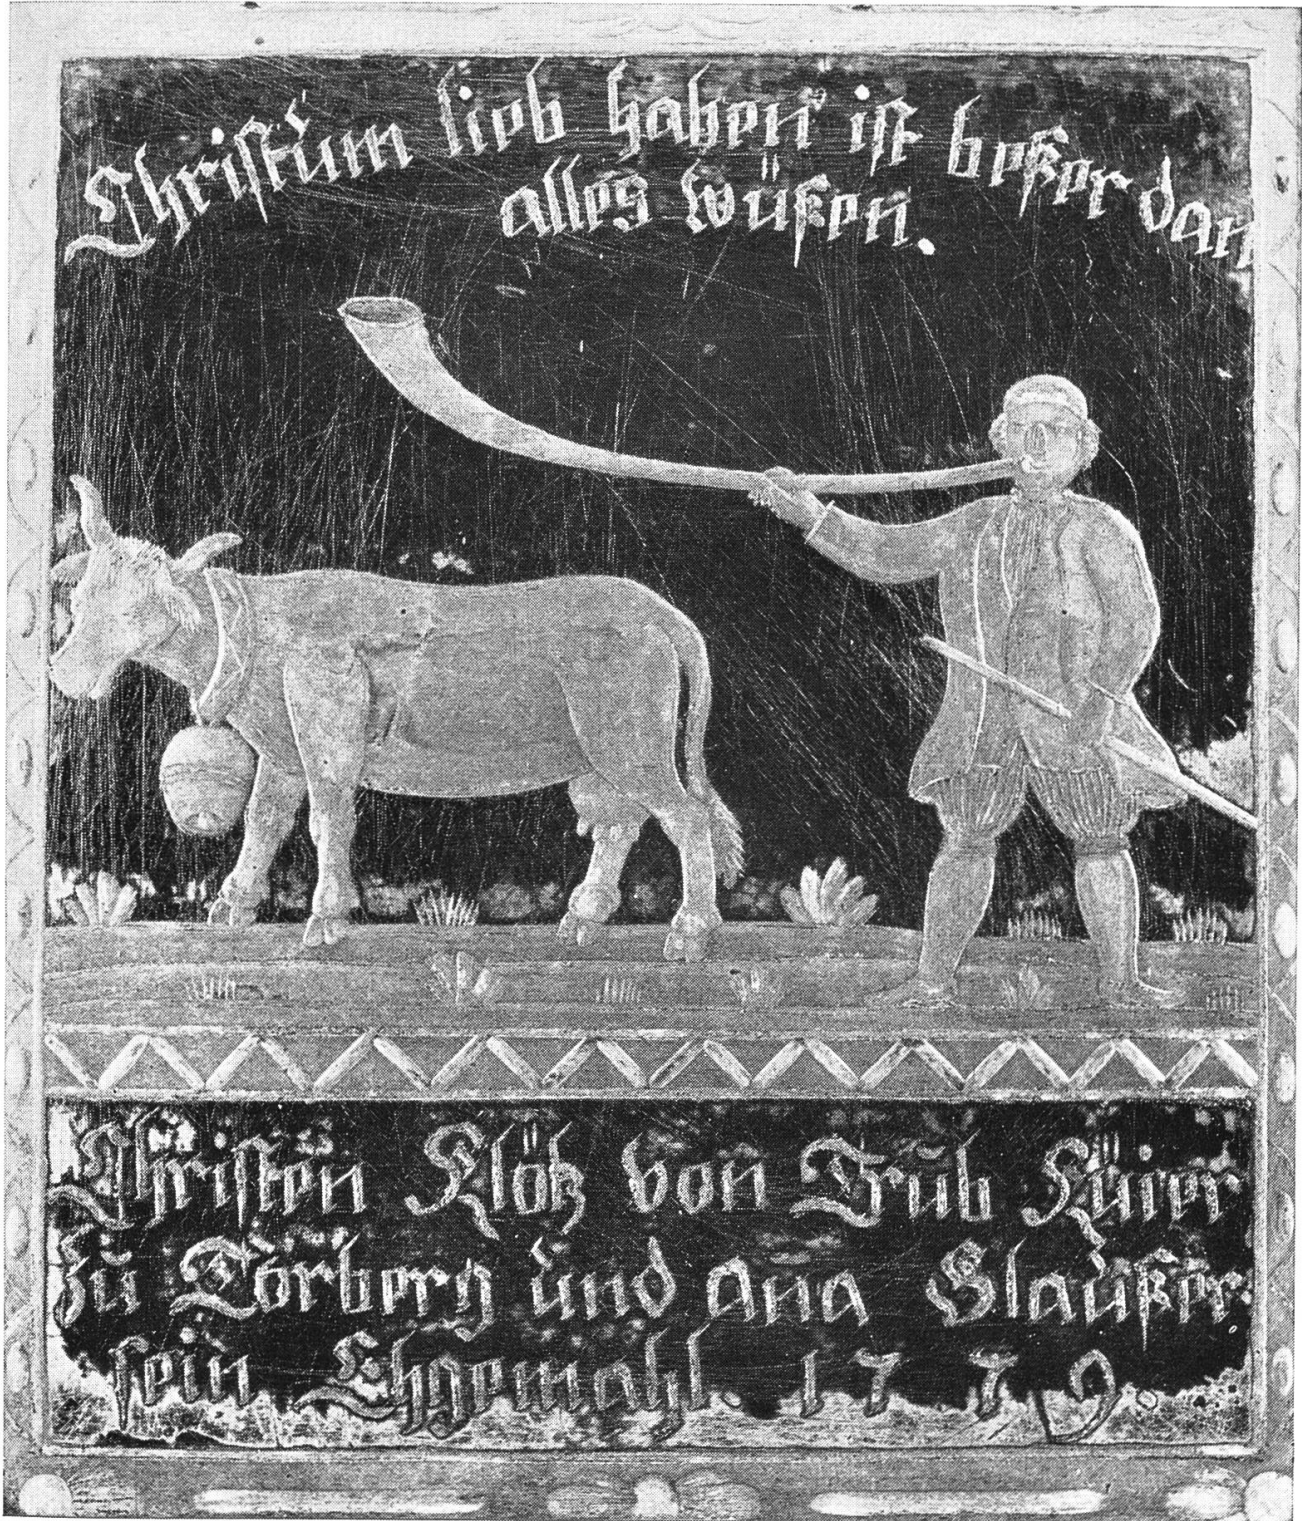 Christum lieb haben ist beßer dan
alles wüßen.
Christen Klötz von Trub Küier
zu Torberg und Ana Blaußer
sein Ehgemahl. 1779.